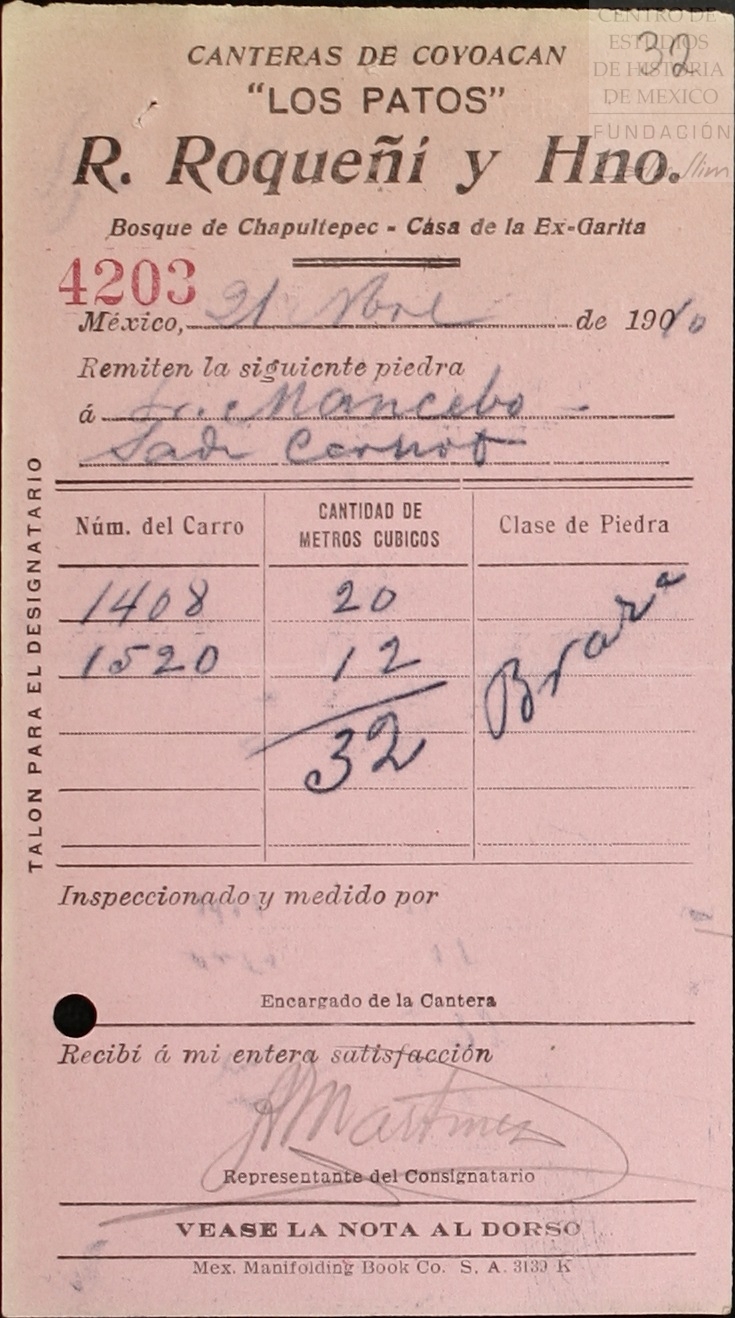 CENTRO DE
ESTUDIOS
DE HISTORIA
DE MEXICO
FUNDACIÓN
Carlos Slim
32
CANTERAS DE COYOACAN
"LOS PATOS"
R. Roqueñí y Hno.
Bosque de Chapultepec - Casa de la Ex-Garita
4203
México, 21 Nbre de 1910
Remiten la siguiente piedra
á Sr. Mancebo
Sadi Carnot
TALON PARA EL DESIGNATARIO
Núm. del Carro CANTIDAD DE METROS CUBICOS Clase de Piedra
1408 20 Braza
1520 12
32
Inspeccionado y medido por
Encargado de la Cantera
Recibí á mi entera satisfacción
Martinez
Representante del Consignatario
VEASE LA NOTA AL DORSO
Mex. Manifolding Book Co. S. A. 3139 K